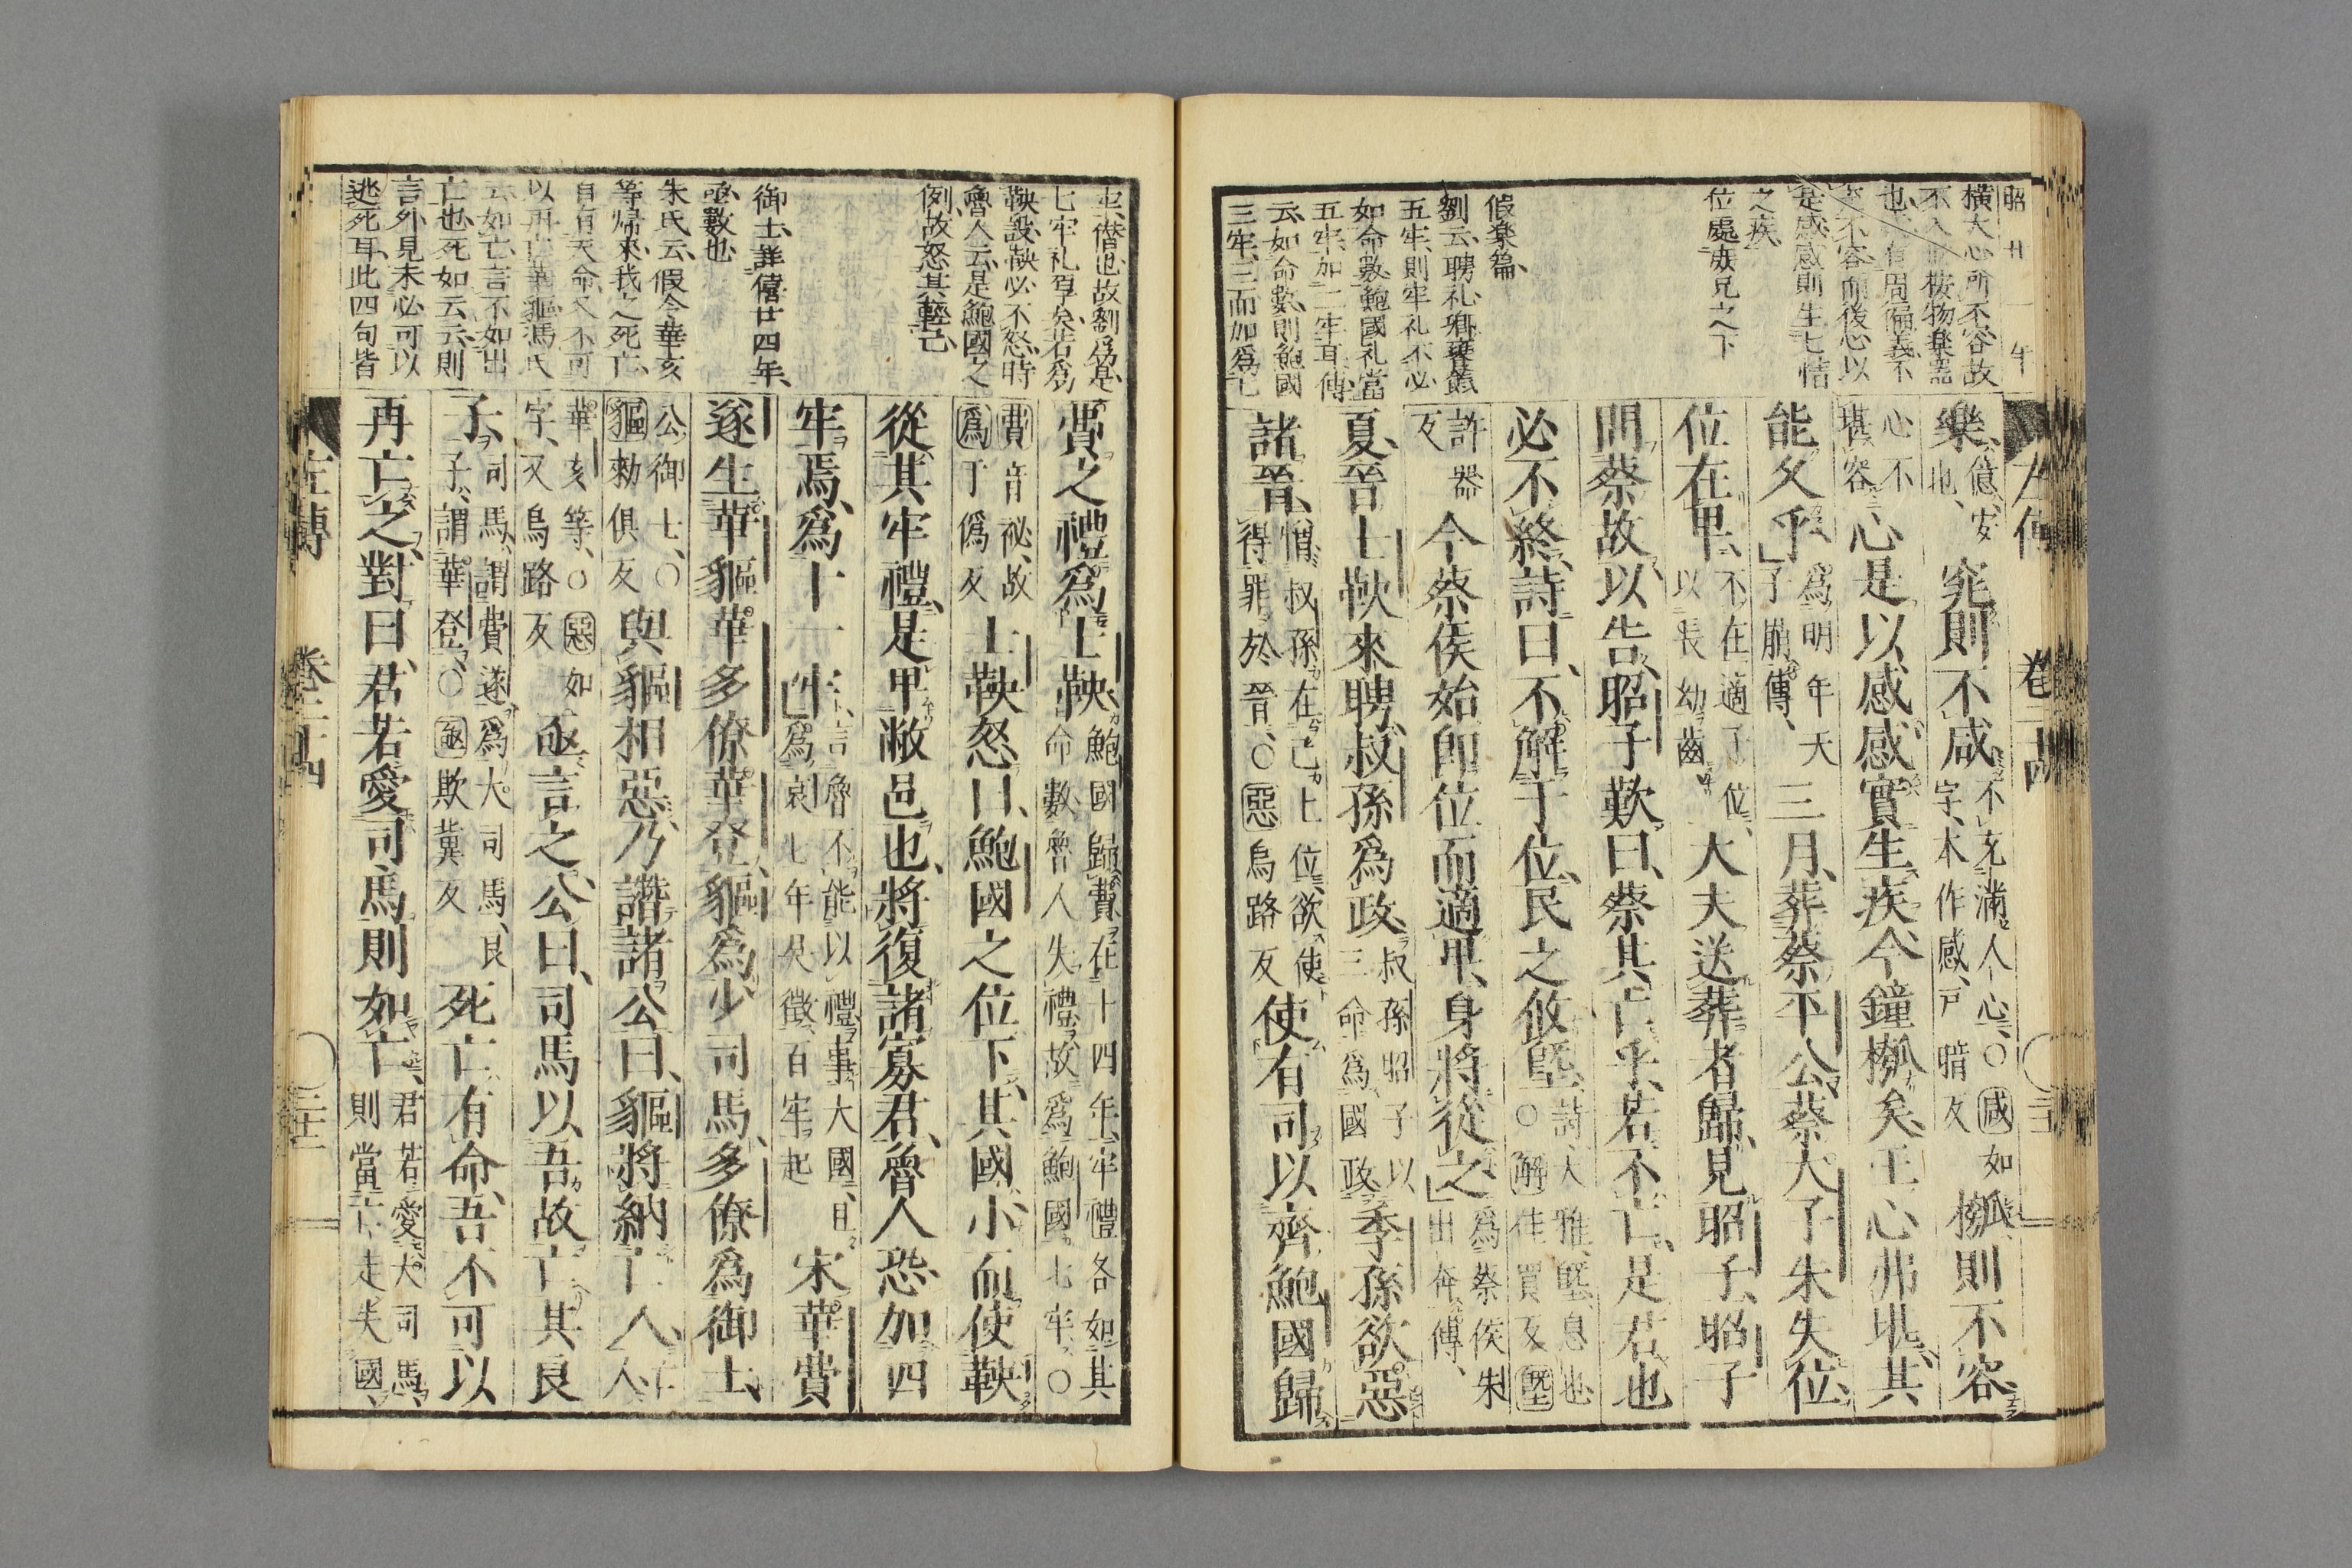 昭廿一年
横大心所不容故
也
不容而後心以
是感感則生七情
之疾
位處庶兄之下
假樂篇
劉云聘礼卿饔餼
五牢則牢礼不必
如命數鮑國礼當
五牢加二牢耳傳
云如命數則鮑國
三牢三而加爲七
左傳 卷二十四
樂億安也窕則不咸不充滿人心○咸如字本作感戸暗反槬則不容
心不堪容心是以感感實生疾今鐘槬矣王心弗堪其
能久乎爲明年天子崩傳三月葬蔡平公蔡大子朱失位
位在卑不在適子位以長幼齒大夫送葬者歸見昭子昭子
問蔡故以告昭子歎曰蔡其亡乎若不亡是君也
必不終詩曰不解于位民之攸塈詩大雅塈息也○解佳買反塈
許器反今蔡侯始即位而適卑身將從之爲蔡侯朱出奔傳
夏晉士鞅來聘叔孫爲政叔孫昭子以三命爲國政季孫欲惡
諸晉憎叔孫在己上位欲使得罪於晉○惡烏路反使有司以齊鮑國歸
七牢礼享矣若爲
鞅設鞅必不怒時
魯人云是鮑國之
例故怒其輕己
御士詳僖廿四年
亟數也
朱氏云假令華亥
等歸來我之死亡
自有天命又不可
以再亡華貙馮氏
云如亡言不如出
亡也死如云云則
言外見未必可以
逃死耳此四句皆
費之禮爲士鞅鮑國歸費在十四年牢禮各如其命數魯人失禮故爲鮑國七牢○
費音祕故爲于僞反士鞅怒曰鮑國之位下其國小而使鞅
從其牢禮是卑敝邑也將復諸寡君魯人恐加四
牢焉爲十一牢言魯不能以禮事大國且爲哀七年吳徵百牢起宋華費
遂生華貙華多僚華登貙爲少司馬多僚爲御士
公御士○貙勑俱反與貙相惡乃譖諸公曰貙將納亡人亡人
華亥等○惡如字又烏路反亟言之公曰司馬以吾故亡其良
子司馬謂費遂爲大司馬良子謂華登○亟欺冀反死亡有命吾不可以
再亡之對曰君若愛司馬則如亡君若愛大司馬則當亡走失國
左傳 卷二十四